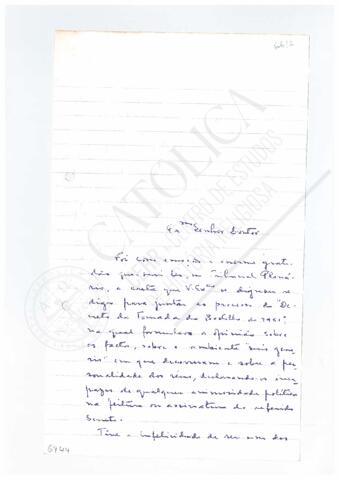 Ex.mo Senhor Doutor
Foi com emoção e enorme grati-
dão que ouvi ler, no Tribunal Plená-
rio, a carta que V. Exa. se dignou re-
digir para juntar ao processo do "De-
creto da Tomada da Bastilha de 1961"
na qual formulava a opinião sobre
os factos, sobre o ambiente "sui gene-
ris" em que decorreram e sobre a per-
sonalidade dos réus, declarando-os inca-
pazes de qualquer animosidade política
na feitura ou assinatura do referido
Decreto.
Tive a infelicidade de ser um dos
CATÓLICA
CENTRO DE ESTUDOS
RELIGIOSA